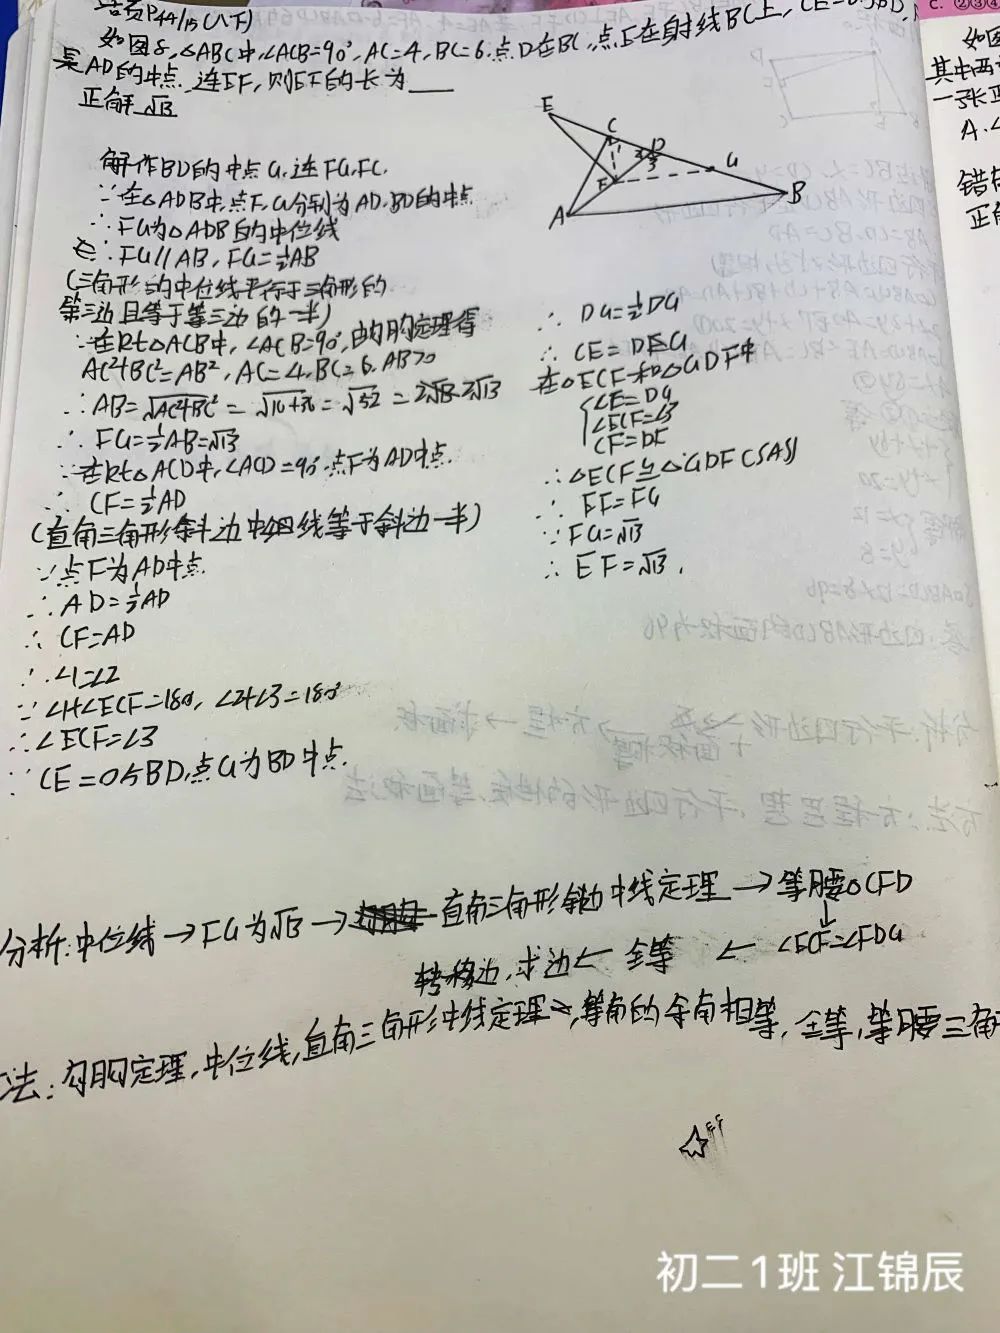 P44/15(八下)
如图8,△ABC中,∠ACB=90°,AC=4,BC=6.点D在BC,点E在射线BC上,CE=0.5BD,
是AD的中点.连EF,则EF的长为___
正解 √13
E
C
D
G
F
A
B
1
2
3
解作BD的中点G,连FG,FC.
∵在△ADB中,点F,G分别为AD,BD的中点
∴FG为△ADB的中位线
∴FG∥AB,FG=½AB
(三角形的中位线平行于三角形的
第三边且等于第三边的一半)
∵在Rt△ACB中,∠ACB=90°,由勾股定理得
AC²+BC²=AB²,AC=4,BC=6,AB>0
∴AB=√AC²+BC²=√16+36=√52=2√13
∴FG=½AB=√13
∵在Rt△ACD中,∠ACD=90°.点F为AD中点.
∴CF=½AD
(直角三角形斜边中线等于斜边一半)
∵点F为AD中点.
∴AD=½AD
∴CF=AD
∴∠1=∠2
∵∠1+∠ECF=180°,∠2+∠3=180°
∴∠ECF=∠3
∵CE=0.5BD,点G为BD中点.
∴DG=½DG
∴CE=DG
在△ECF和△GDF中
CE=DG
∠ECF=∠3
CF=DF
∴△ECF≌△GDF(SAS)
∴EF=FG
∵FG=√13
∴EF=√13.
分析:中位线→FG为√13→直角三角形斜边中线定理→等腰△CFD
↓
转移边,求边←全等←∠ECF=∠FDG
法:勾股定理,中位线,直角三角形中线定理,等角的余角相等,全等,等腰三角
如图
其中两
一张
A.∠
错
正解
C. ②③④
初二1班 江锦辰